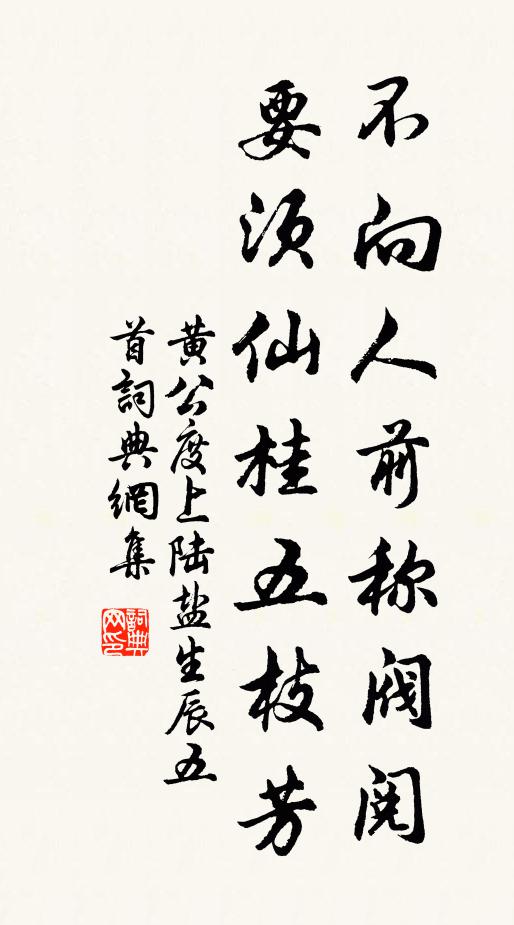 不向人前称阀阅
要须仙桂五枝芳
黄公度上陆盐生辰五
首詞典網集
詞典
网印